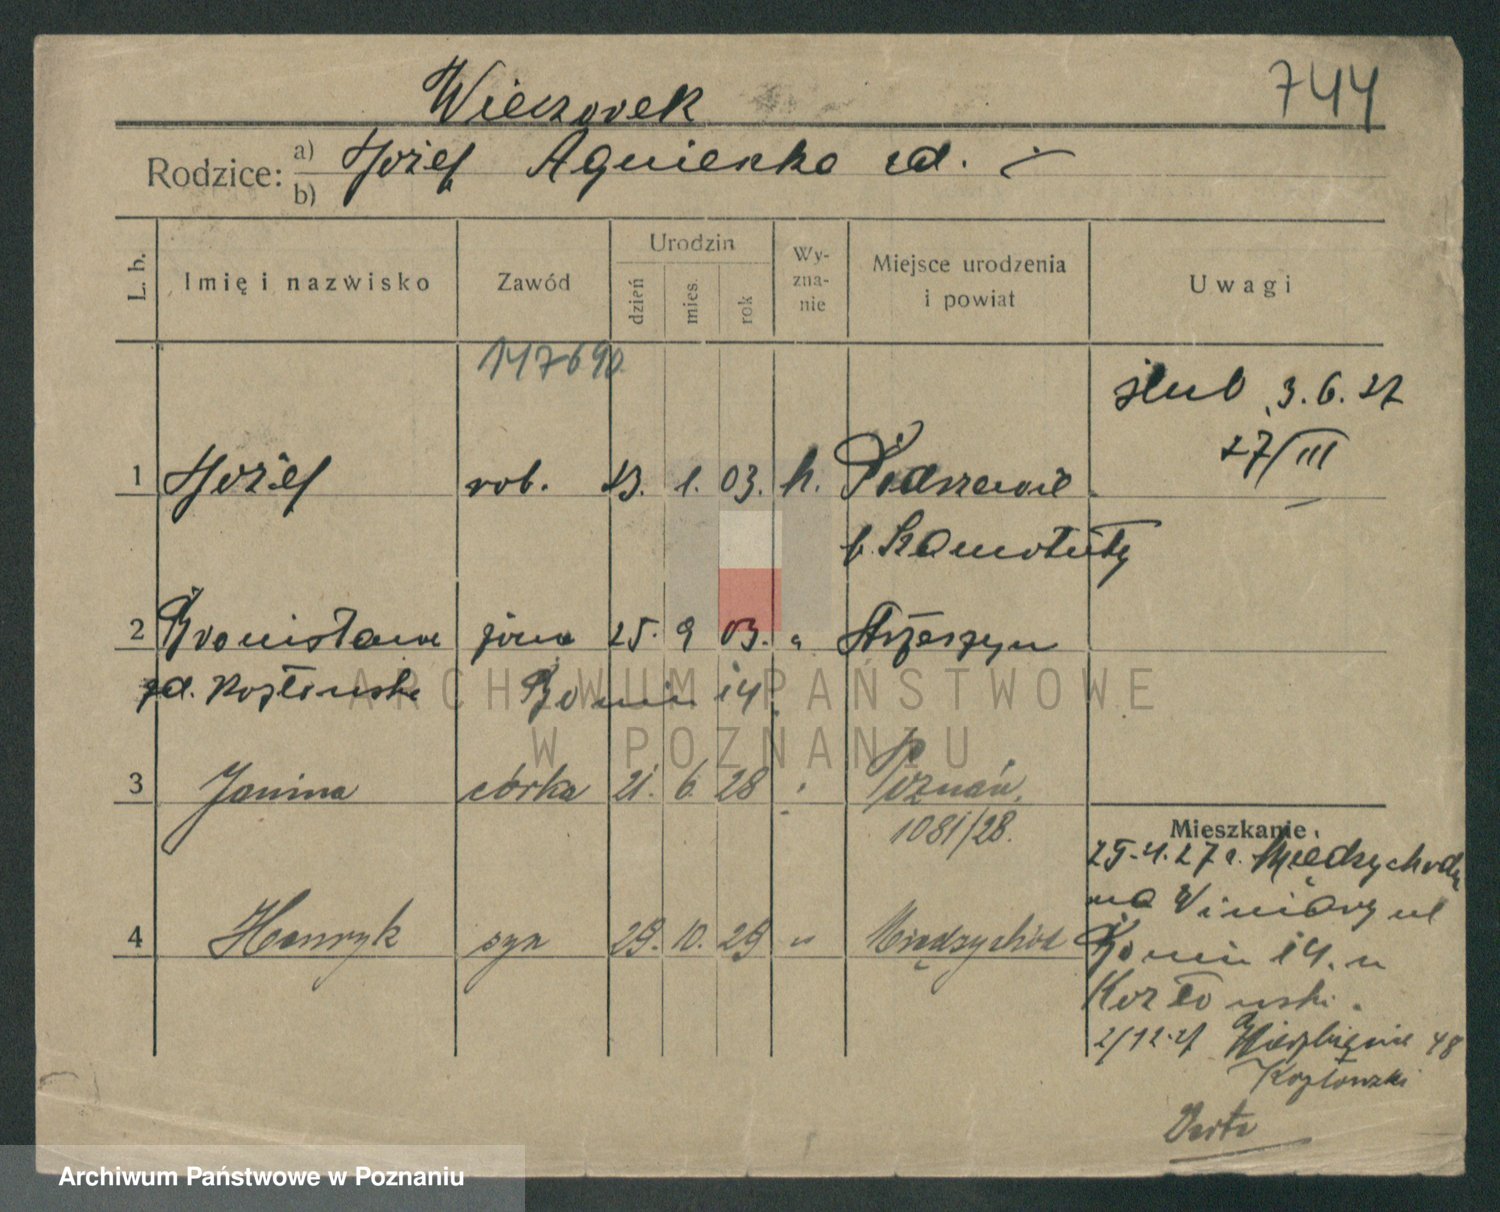 Wieczorek
744
Rodzice: a) Józef Agnieszka zd. -
b)
L. b. Imię i nazwisko Zawód Urodzin dzień mies. rok Wy-zna-nie Miejsce urodzenia i powiat Uwagi
147690
ślub 3.6.27
27/III
1 Józef rob. 13. 1. 03. k.
p. Szamotuły
2 Bronisława żona 25. 9 03. " Strzeszyn
zd. Kozłowska Bonin 14.
3 Janina córka 21. 6. 28 " Poznań
1081/28.
Mieszkanie
25.4.27 z Międzychodu
na Winiary ul
4 Henryk syn 29. 10. 29 " Międzychód
Bonin 14. u
Kozłowski.
2/12.27 Wierzbięcice 48
Kozłowski
ARCHIWUM PAŃSTWOWE
W POZNANIU
Archiwum Państwowe w Poznaniu